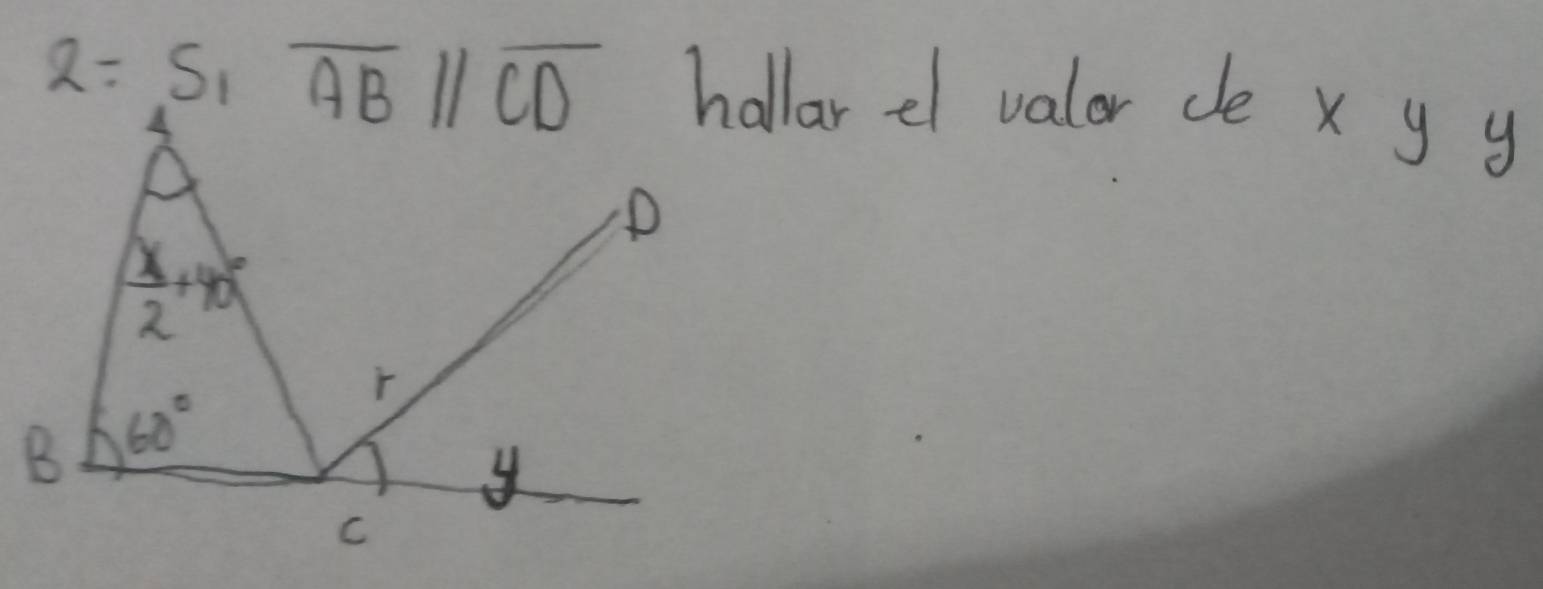 2= Si AB // CD hallar el valor de x y y
A
D
x/2 +40°
r
B 60°
y
C